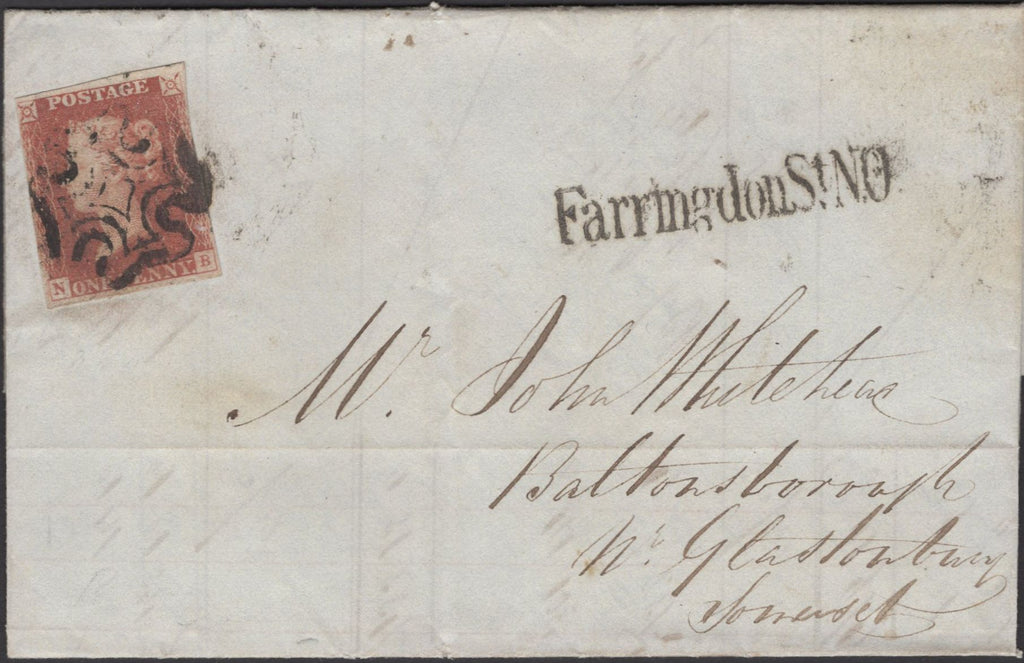 POSTAGE
N ONE PENNY B
Farringdon St N.O
Mr. John
Baltonsborough
Nr. Glastonbury
Somerset